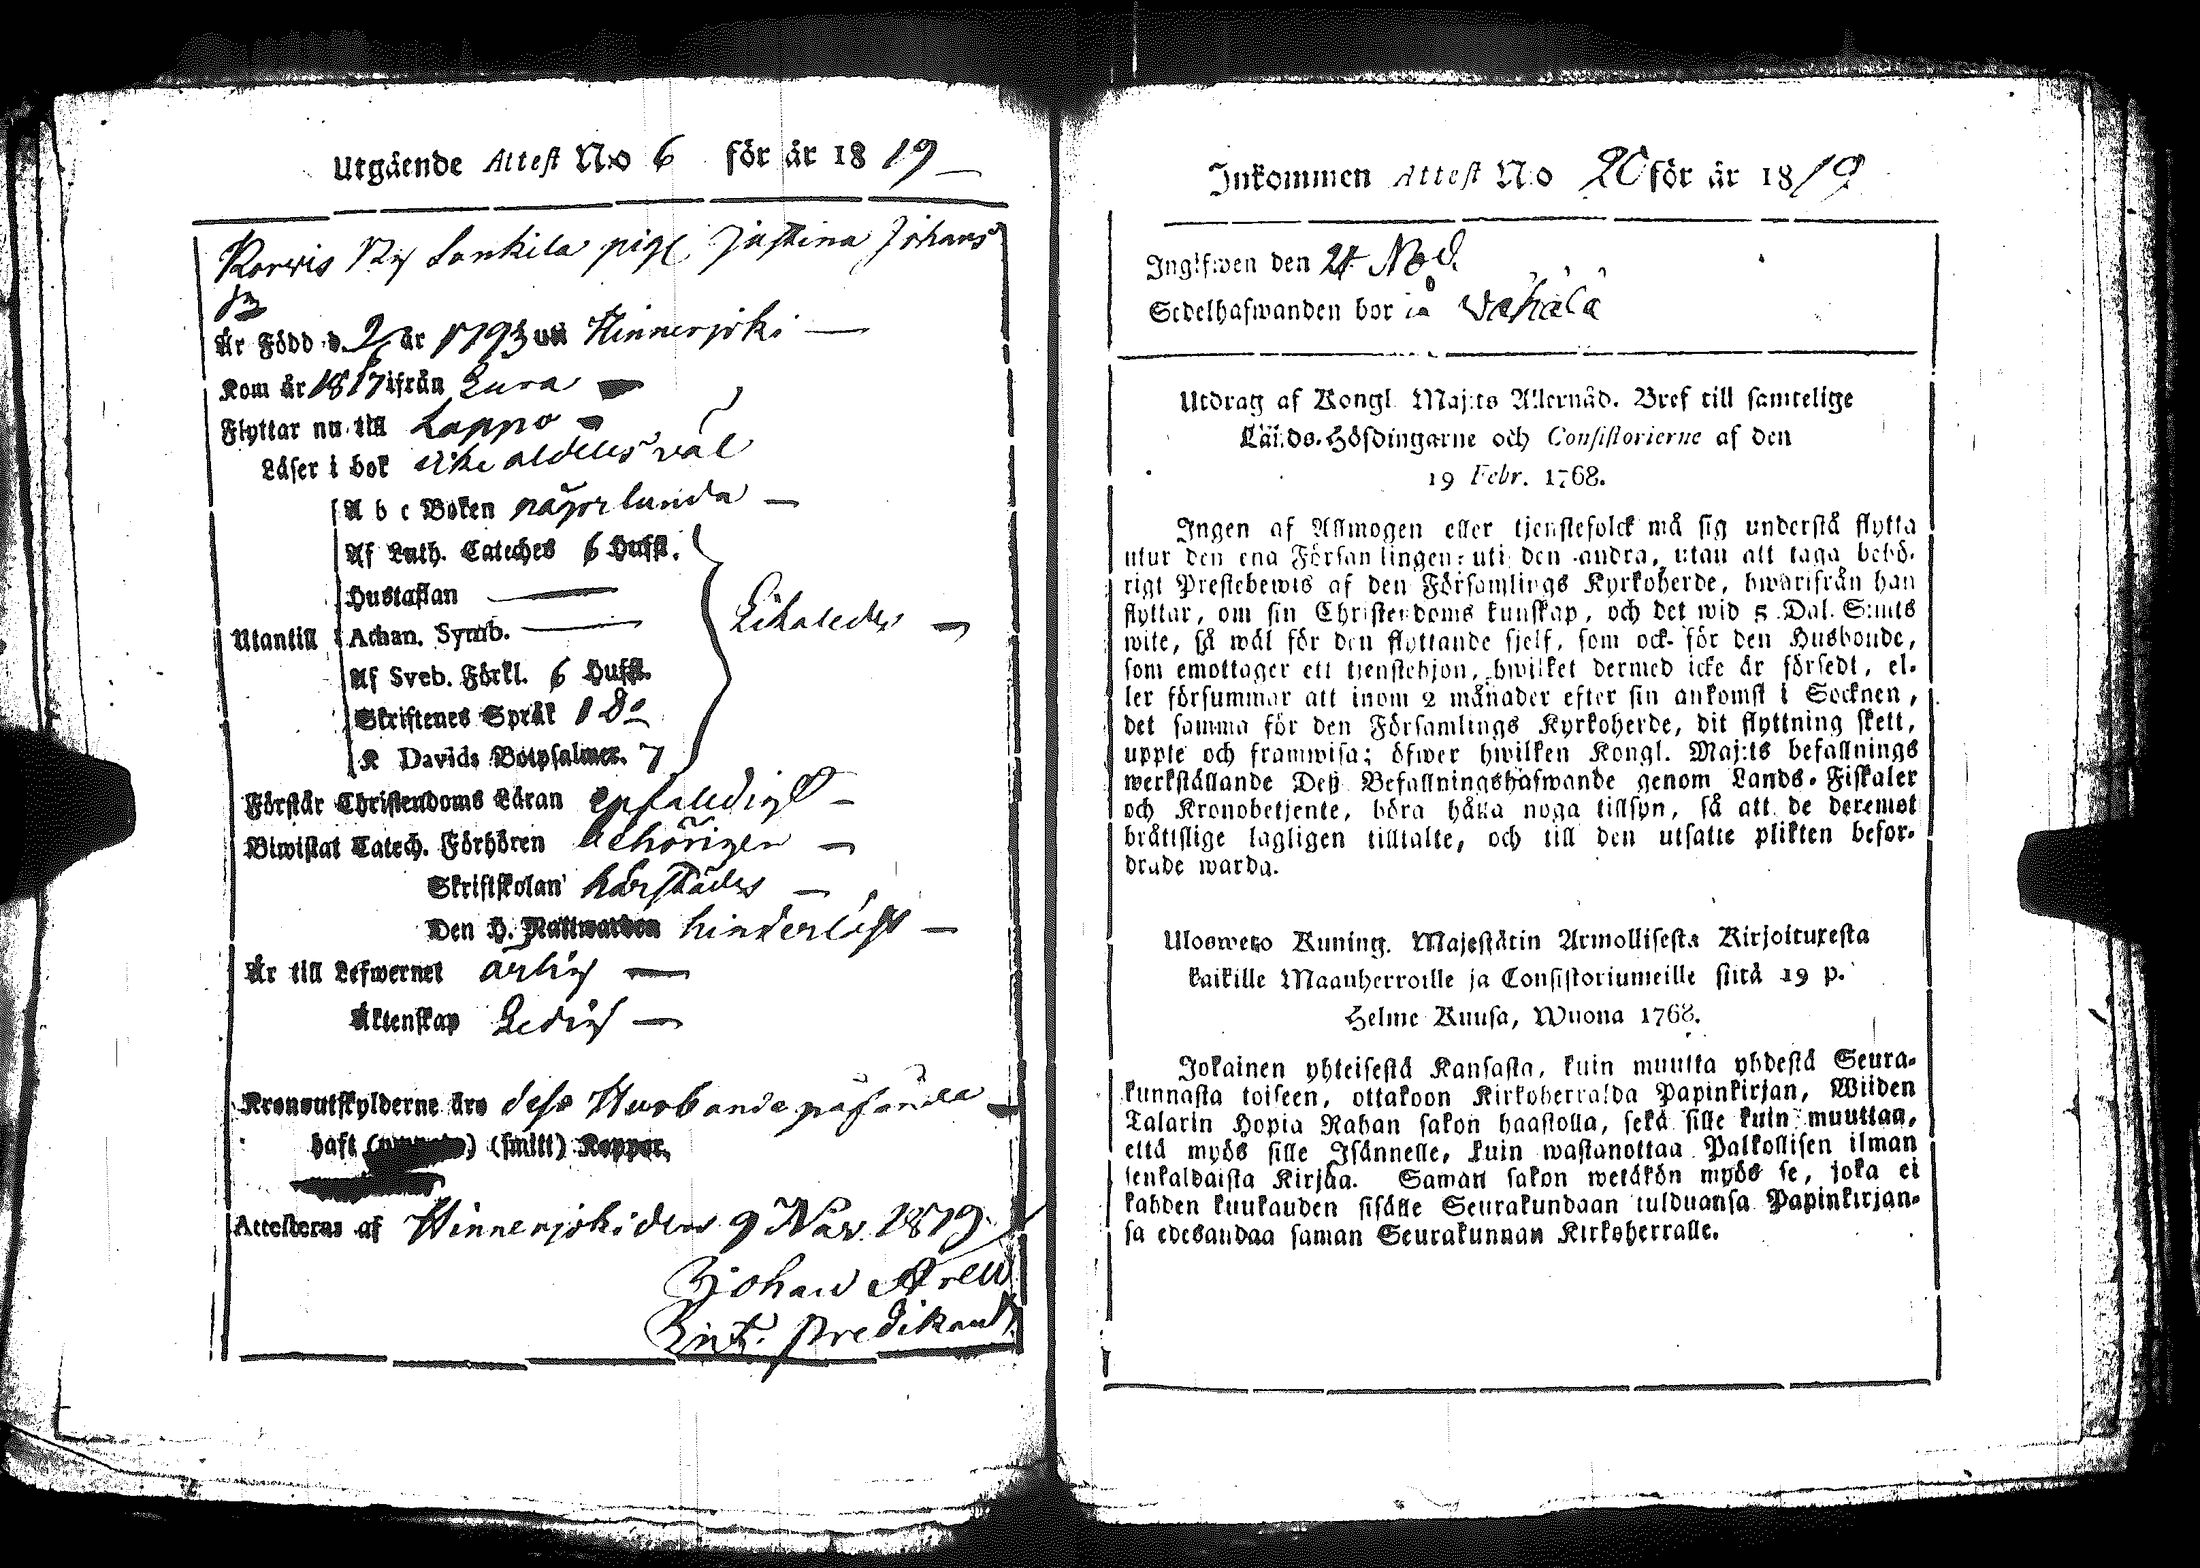 Utgående Attest No 6 för år 1819
Korvis By Sonkila pig. Justina Johans
Är Född d. 2/6 år 1793 uti Hinnerjoki
Kom år 1817 ifrån Eura
Flyttar nu till Lappo
Läser i bok icke aldeles väl
A b c Boken någorlunda
Af Luth. Cateches 6 Hufst.
Hustaflan
Likaledes
Utantill Athan. Symb.
Af Sveb. Förkl. 6 Hufst.
Skriftenes Språk 1 Do
K Davids Botpsalmer. 7
Förstår Christendoms Läran enfaldigt
Biwistat Catech. Förhören behörigen
Skriftskolan härstädes
Den H. Nattwarden hinderlöst
Är till Lefwernet ärlig
Äktenskap Ledig
Kronoutskylderne äro dess Husbonde påförda
haft () (smitt) Koppor.
Attesteras af Hinnerjoki den 9 Nov. 1819.
Johan
Predikant
Inkommen Attest No 20 för år 1819
Ingifwen den 24 Nov.
Sedelhafwanden bor på Wähälä
Utdrag af Kongl. Maj:ts Allernåd. Bref till samtelige
Lands-Höfdingarne och Consistorierne af den
19 Febr. 1768.
Ingen af Allmogen eller tjenstefolck må sig understå flytta
utur den ena Församlingen uti den andra, utan att taga behö-
rigt Prestebewis af den Församlings Kyrkoherde, hwarifrån han
flyttar, om sin Christendoms kunskap, och det wid 5 Dal. S:mts
wite, så wäl för den flyttande sjelf, som ock för den Husbonde,
som emottager ett tjenstehjon, hwilket dermed icke är försedt, el-
ler försummar att inom 2 månader efter sin ankomst i Socknen,
det samma för den Församlings Kyrkoherde, dit flyttning skett,
uppte och framwisa; öfwer hwilken Kongl. Maj:ts befallnings
werkställande Deß Befallningshafwande genom Lands-Fiskaler
och Kronobetjente, böra hålla noga tillsyn, så att de deremot
bråttslige lagligen tilltalte, och till den utsatte plikten befor-
drade warda.
Ulosweto Kuning. Majestätin Armollisesta Kirjoituresta
kaikille Maanherroille ja Consistoriumeille siitä 19 p.
Helme Kuusa, Wuona 1768.
Jokainen yhteisestä Kansasta, kuin muutta yhdestä Seura-
kunnasta toiseen, ottakoon Kirkoherralda Papinkirjan, Wiiden
Talarin Hopia Rahan sakon haastolla, sekä sille kuin muuttaa,
että myös sille Isännelle, kuin wastanottaa Palkollisen ilman
senkaldaista Kirjaa. Saman sakon wetäkön myös se, joka ei
kahden kuukauden sisälle Seurakundaan tulduansa Papinkirjan-
sa edesandaa saman Seurakunnan Kirkoherralle.